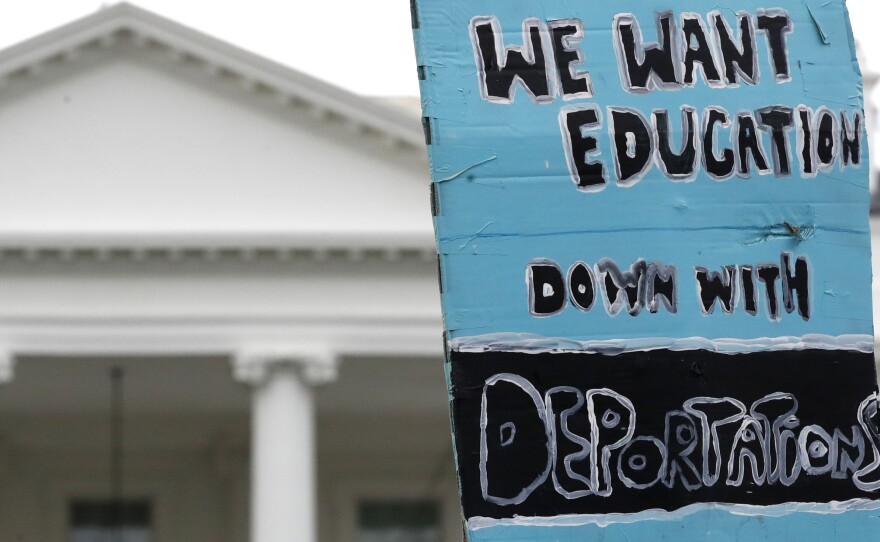 WE WANT
EDUCATION
DOWN WITH
DEPORTATIONS